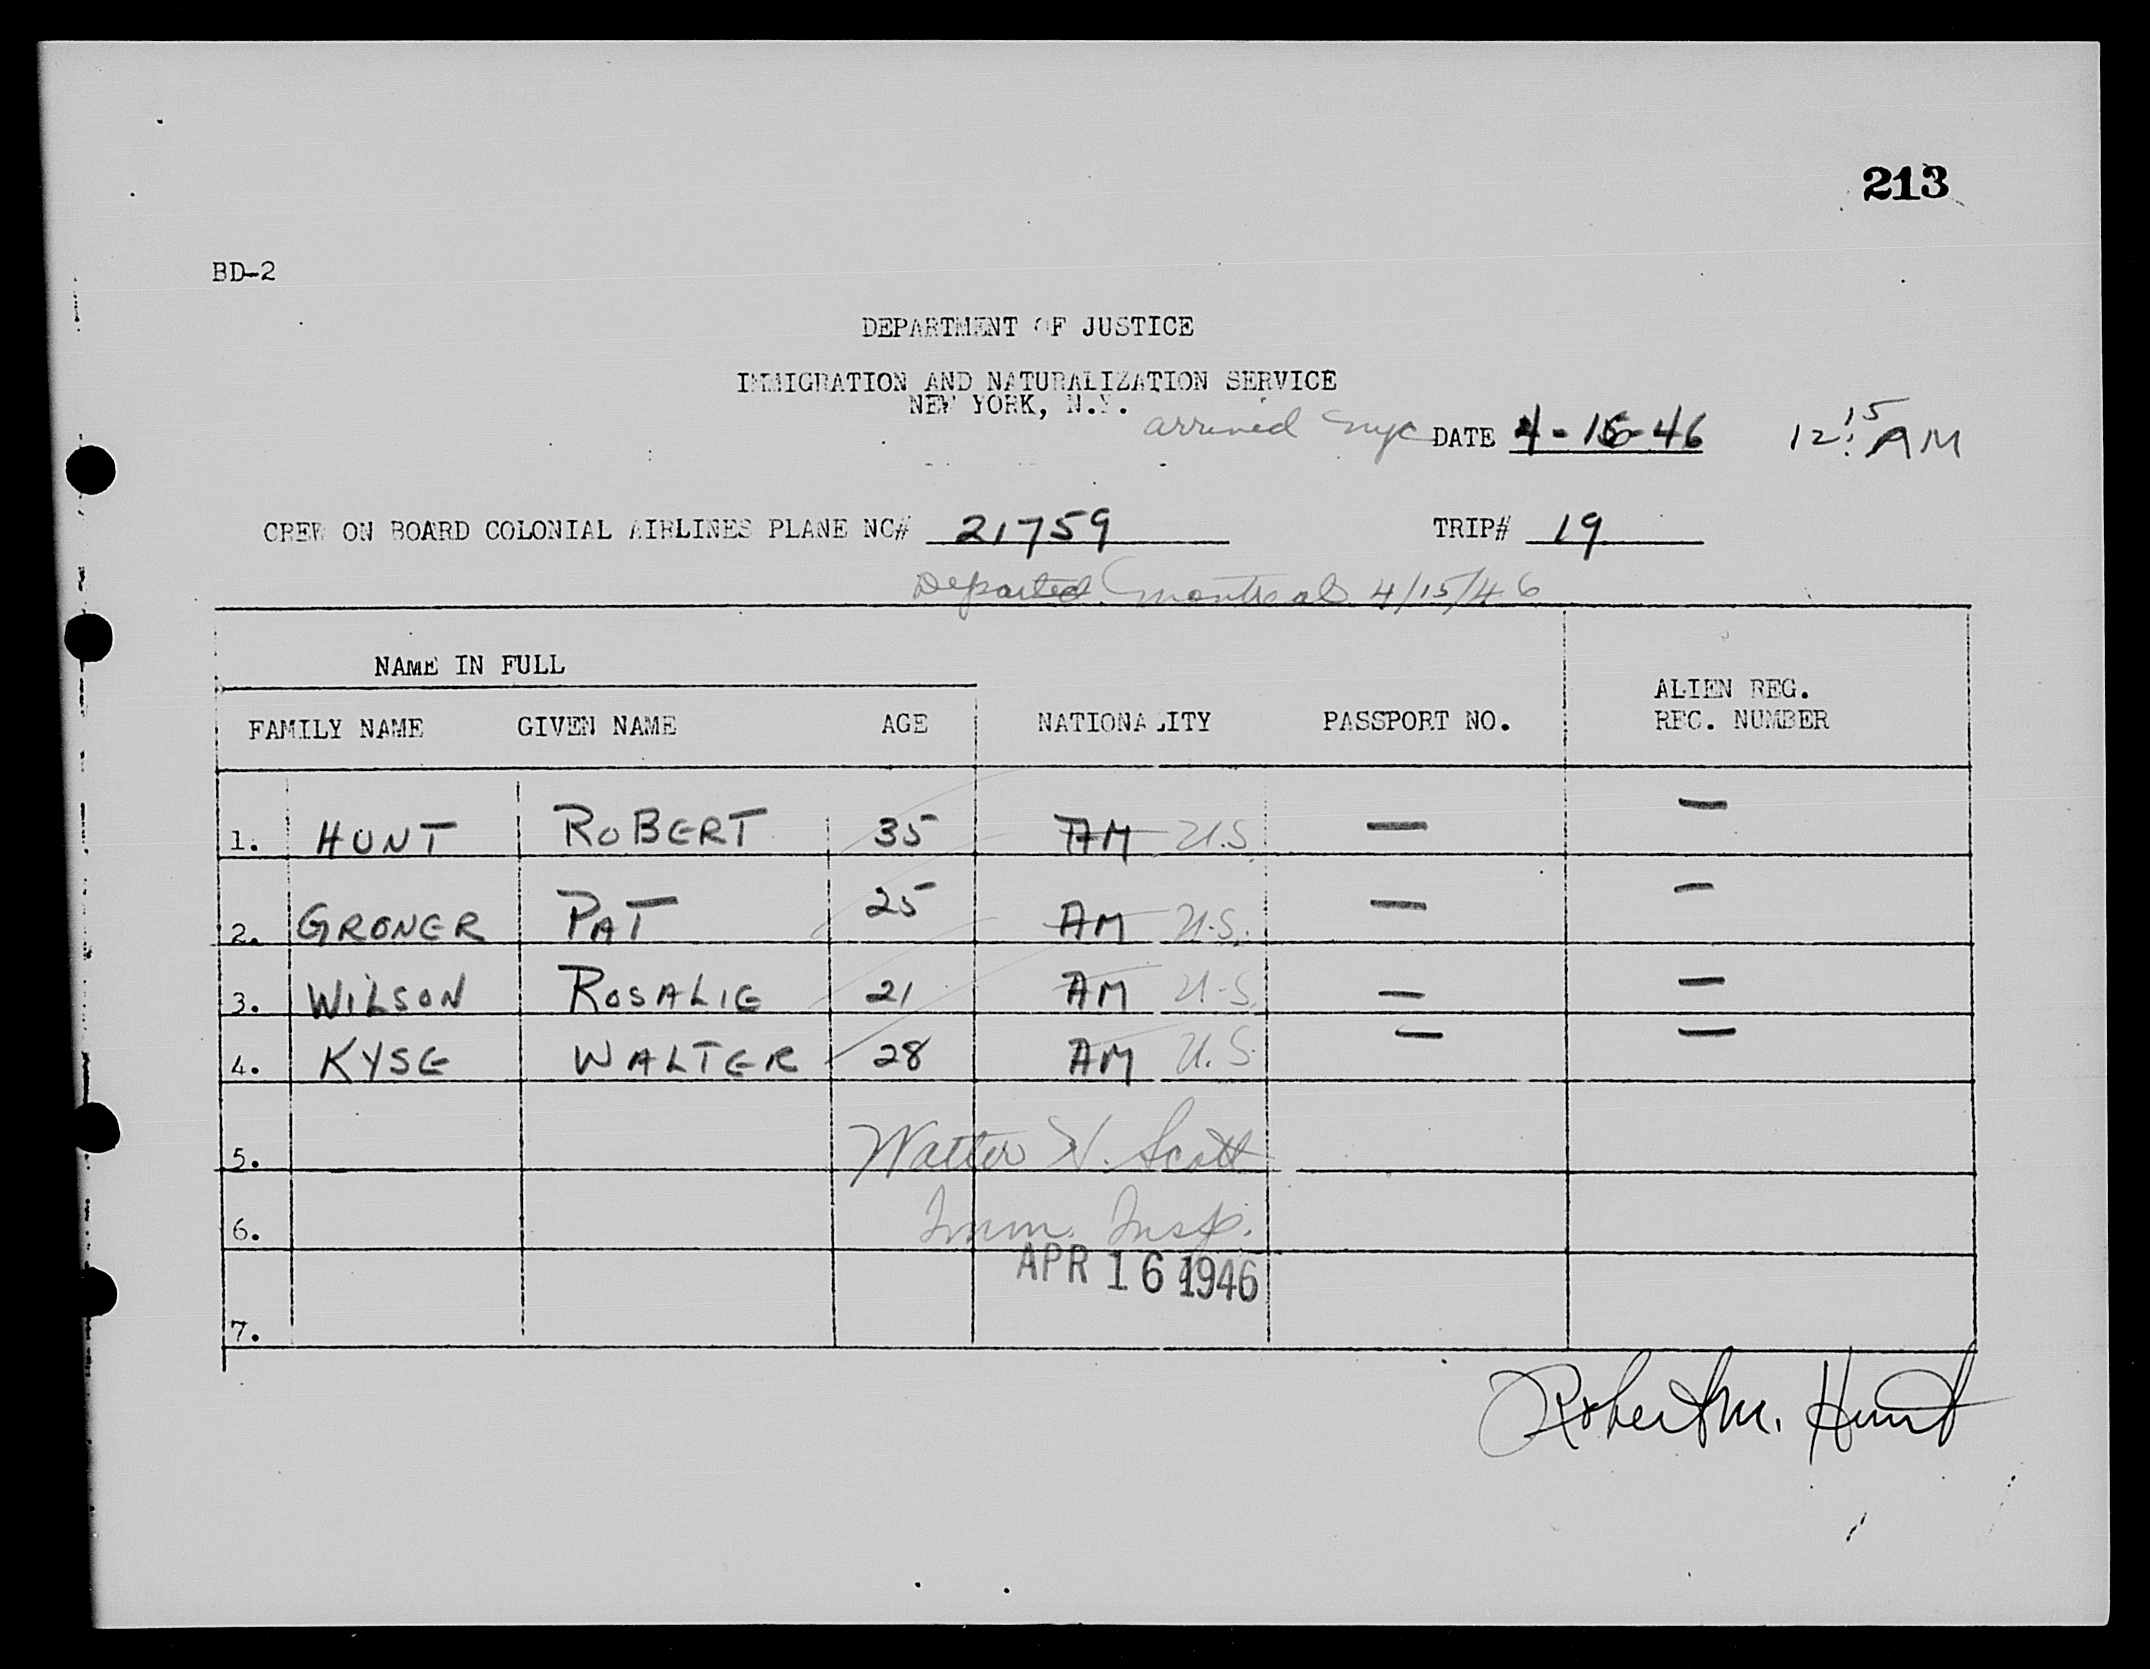 213
BD-2
DEPARTMENT OF JUSTICE
IMMIGRATION AND NATURALIZATION SERVICE
NEW YORK, N.Y.
arrived nyc DATE 4-16-46 12:15 AM
CREW ON BOARD COLONIAL AIRLINES PLANE NC# 21759 TRIP# 19
Departed Montreal 4/15/46
NAME IN FULL
ALIEN REG.
FAMILY NAME GIVEN NAME AGE NATIONALITY PASSPORT NO. REC. NUMBER
1. HUNT ROBERT 35 AM U.S. — —
2. GRONER PAT 25 AM U.S. — —
3. WILSON ROSALIE 21 AM U.S. — —
4. KYSE WALTER 28 AM U.S. — —
5. Walter H. Scott
6. Imm. Insp.
APR 16 1946
7.
Robert M. Hunt